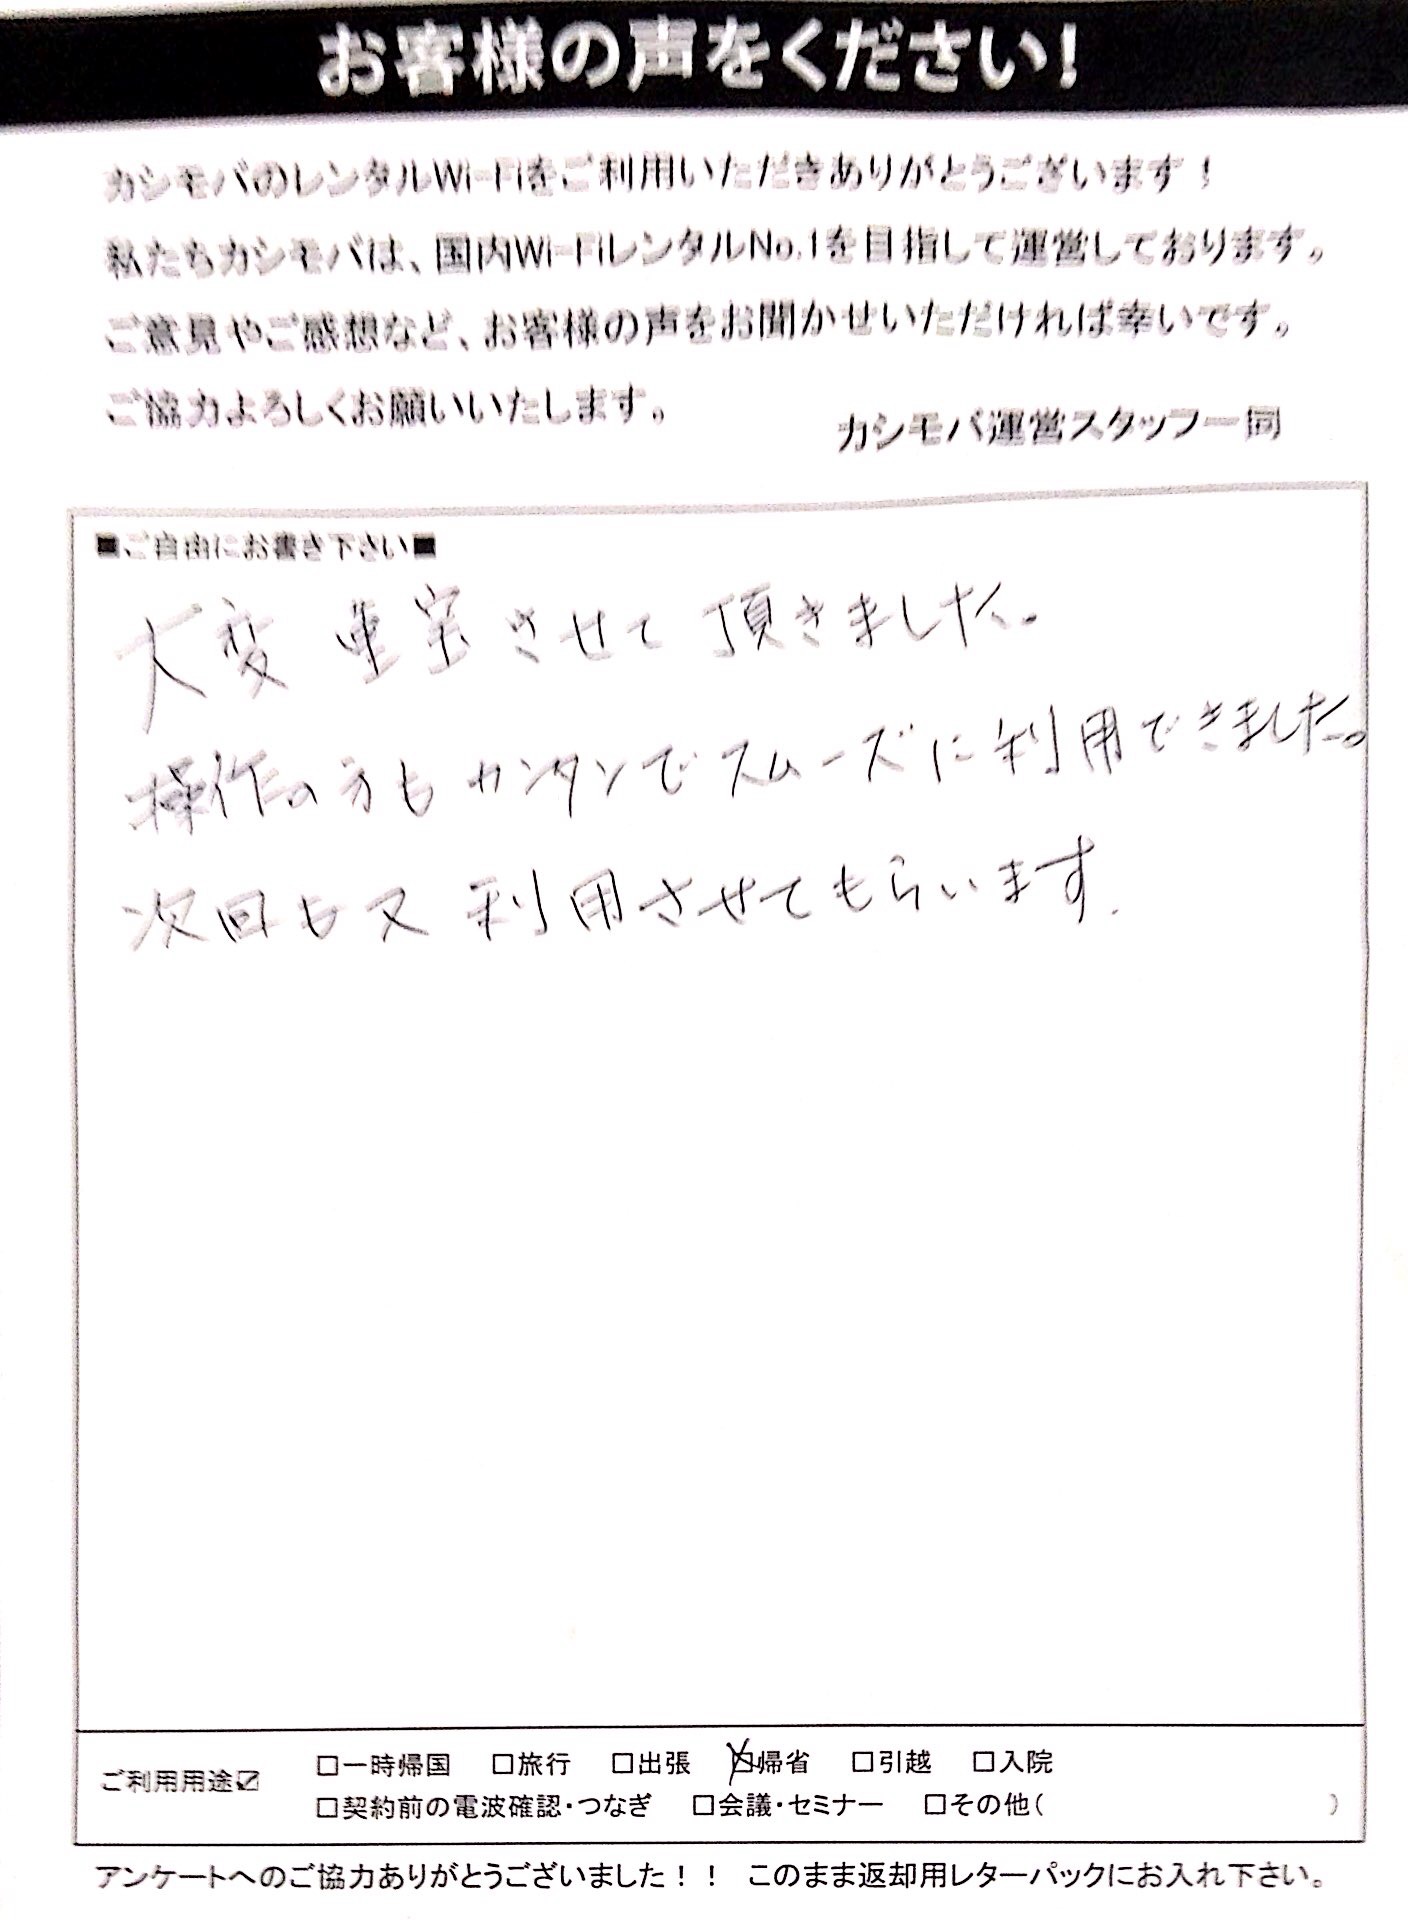 お客様の声をください!
カシモバのレンタルWi-Fiをご利用いただきありがとうございます！
私たちカシモバは、国内Wi-FiレンタルNo.1を目指して運営しております。
ご意見やご感想など、お客様の声をお聞かせいただければ幸いです。
ご協力よろしくお願いいたします。
カシモバ運営スタッフ一同
■ご自由にお書き下さい■
大変 重宝させて頂きました。
操作の方もカンタンでスムーズに利用できました。
次回も又 利用させてもらいます.
ご利用用途☑
□一時帰国 □旅行 □出張 ☒帰省 □引越 □入院
□契約前の電波確認・つなぎ □会議・セミナー □その他( )
アンケートへのご協力ありがとうございました！！ このまま返却用レターパックにお入れ下さい。